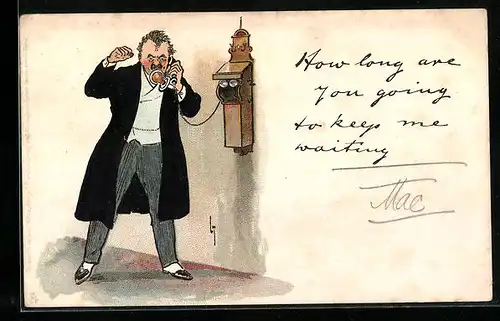 How long are
you going
to keep me
waiting
Mac